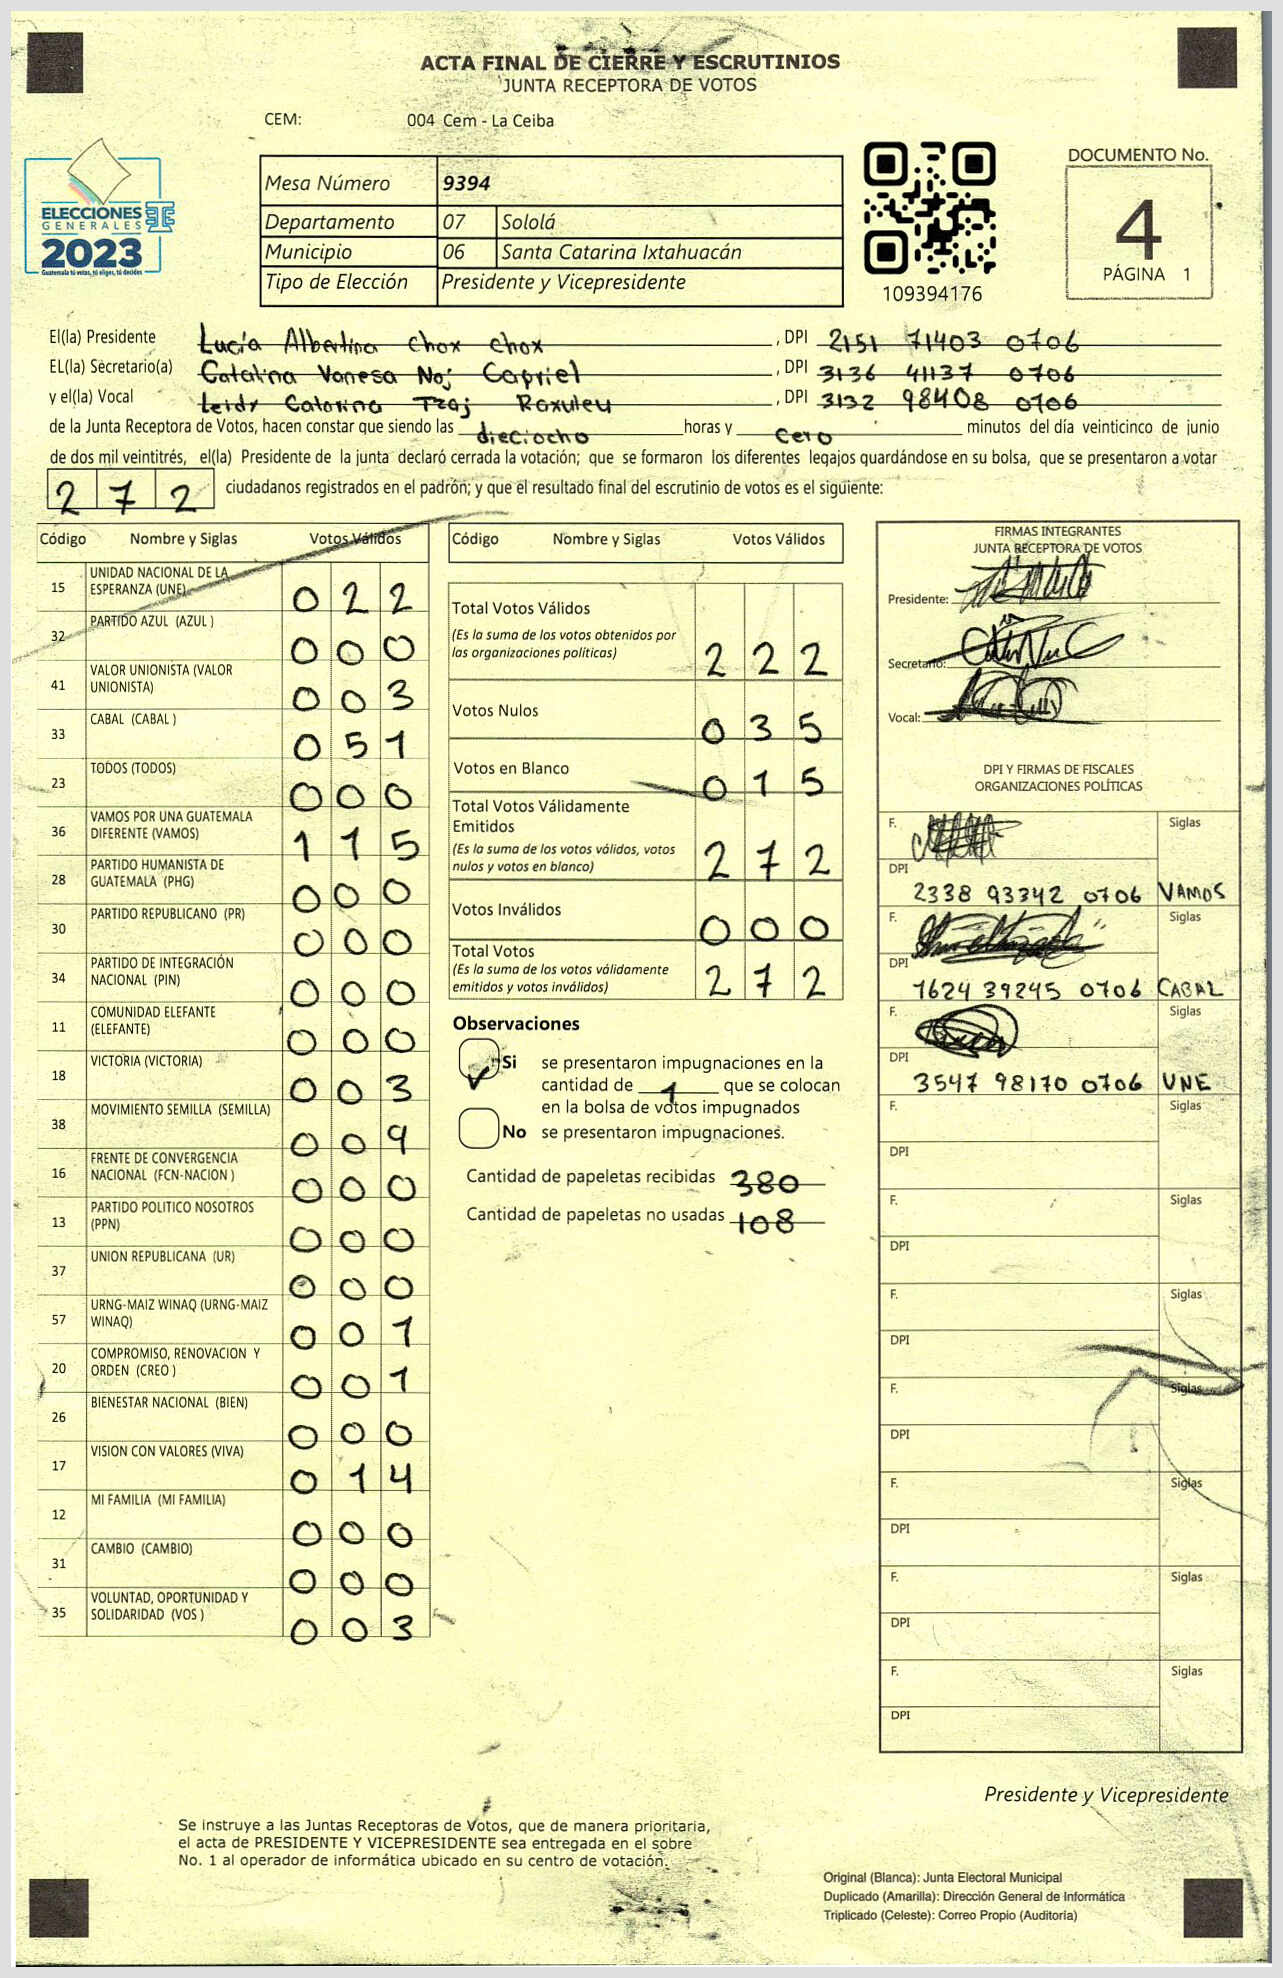 ACTA FINAL DE CIERRE Y ESCRUTINIOS
JUNTA RECEPTORA DE VOTOS
CEM: 004 Cem - La Ceiba
ELECCIONES
GENERALES
2023
Guatemala tú votas, tú eliges, tú decides
Mesa Número 9394
Departamento 07 Sololá
Municipio 06 Santa Catarina Ixtahuacán
Tipo de Elección Presidente y Vicepresidente
109394176
DOCUMENTO No.
4
PÁGINA 1
El(la) Presidente Lucía Albertina Chox Chox, DPI 2151 71403 0706
EL(la) Secretario(a) Catalina Vanesa Noj Capriel, DPI 3136 41137 0706
y el(la) Vocal Leidy Catarina Tzaj Roxuleu, DPI 3132 98408 0706
de la Junta Receptora de Votos, hacen constar que siendo las dieciocho horas y cero minutos del día veinticinco de junio
de dos mil veintitrés, el(la) Presidente de la junta declaró cerrada la votación; que se formaron los diferentes legajos guardándose en su bolsa, que se presentaron a votar
272 ciudadanos registrados en el padrón; y que el resultado final del escrutinio de votos es el siguiente:
Código Nombre y Siglas Votos Válidos
15 UNIDAD NACIONAL DE LA ESPERANZA (UNE) 022
32 PARTIDO AZUL (AZUL ) 000
41 VALOR UNIONISTA (VALOR UNIONISTA) 003
33 CABAL (CABAL ) 051
23 TODOS (TODOS) 000
36 VAMOS POR UNA GUATEMALA DIFERENTE (VAMOS) 115
28 PARTIDO HUMANISTA DE GUATEMALA (PHG) 000
30 PARTIDO REPUBLICANO (PR) 000
34 PARTIDO DE INTEGRACIÓN NACIONAL (PIN) 000
11 COMUNIDAD ELEFANTE (ELEFANTE) 000
18 VICTORIA (VICTORIA) 003
38 MOVIMIENTO SEMILLA (SEMILLA) 009
16 FRENTE DE CONVERGENCIA NACIONAL (FCN-NACION ) 000
13 PARTIDO POLITICO NOSOTROS (PPN) 000
37 UNION REPUBLICANA (UR) 000
57 URNG-MAIZ WINAQ (URNG-MAIZ WINAQ) 001
20 COMPROMISO, RENOVACION Y ORDEN (CREO ) 001
26 BIENESTAR NACIONAL (BIEN) 000
17 VISION CON VALORES (VIVA) 014
12 MI FAMILIA (MI FAMILIA) 000
31 CAMBIO (CAMBIO) 000
35 VOLUNTAD, OPORTUNIDAD Y SOLIDARIDAD (VOS ) 003
Código Nombre y Siglas Votos Válidos
Total Votos Válidos
(Es la suma de los votos obtenidos por
las organizaciones políticas) 222
Votos Nulos 035
Votos en Blanco 015
Total Votos Válidamente
Emitidos
(Es la suma de los votos válidos, votos
nulos y votos en blanco) 272
Votos Inválidos 000
Total Votos
(Es la suma de los votos válidamente
emitidos y votos inválidos) 272
Observaciones
Si se presentaron impugnaciones en la
cantidad de 1 que se colocan
en la bolsa de votos impugnados
No se presentaron impugnaciones.
Cantidad de papeletas recibidas 380
Cantidad de papeletas no usadas 108
FIRMAS INTEGRANTES
JUNTA RECEPTORA DE VOTOS
Presidente:
Secretario:
Vocal:
DPI Y FIRMAS DE FISCALES
ORGANIZACIONES POLÍTICAS
F. Siglas
DPI
2338 93342 0706 VAMOS
F. Siglas
DPI
1624 39245 0706 CABAL
F. Siglas
DPI
3547 98170 0706 UNE
F. Siglas
DPI
F. Siglas
DPI
F. Siglas
DPI
F. Siglas
DPI
F. Siglas
DPI
F. Siglas
DPI
F. Siglas
DPI
Presidente y Vicepresidente
Se instruye a las Juntas Receptoras de Votos, que de manera prioritaria,
el acta de PRESIDENTE Y VICEPRESIDENTE sea entregada en el sobre
No. 1 al operador de informática ubicado en su centro de votación.
Original (Blanca): Junta Electoral Municipal
Duplicado (Amarilla): Dirección General de Informática
Triplicado (Celeste): Correo Propio (Auditoria)